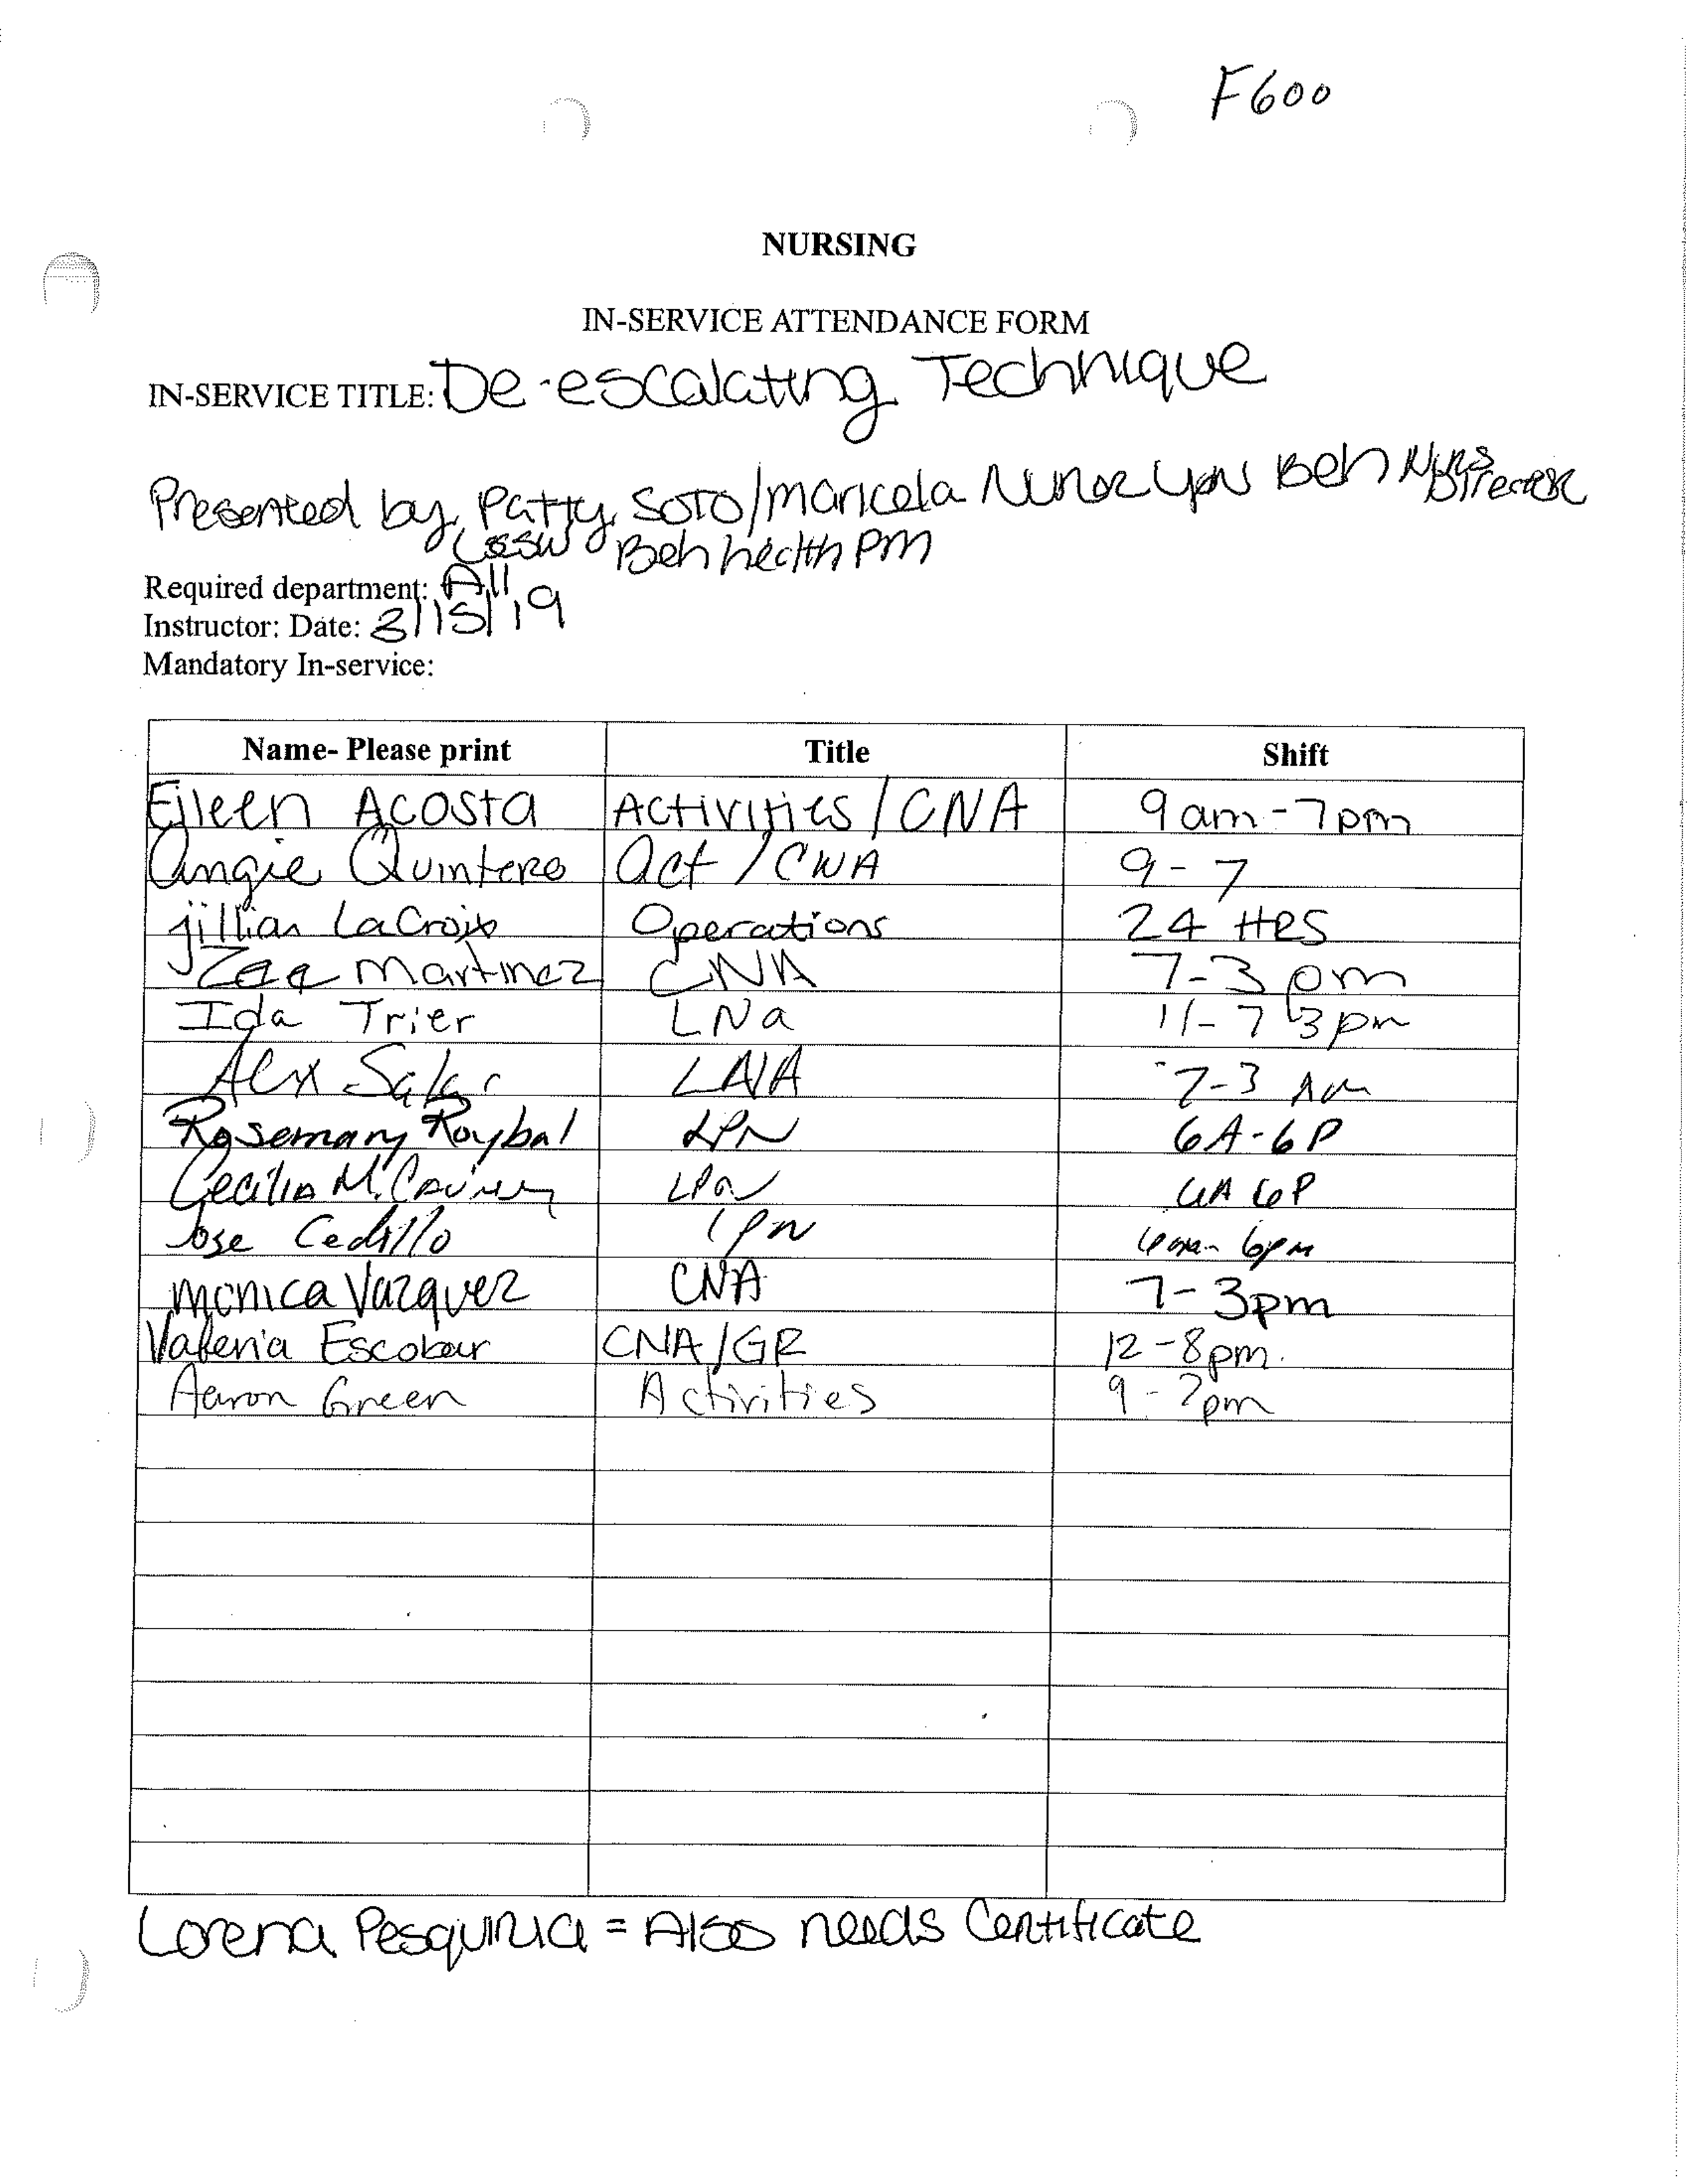 F600
NURSING
IN-SERVICE ATTENDANCE FORM
IN-SERVICE TITLE: De-escalating Technique
Presented by Patty Soto/Maricela Beh Nurs Director
Beh health PM
Required department: All
Instructor: Date: 3/15/19
Mandatory In-service:
Name- Please print Title Shift
Eileen Acosta Activities/CNA 9am-7pm
Angie Quintero Act/CNA 9-7
Jillian LaCroix Operations 24 HRS
Martinez CNA 7-3 pm
Ida Trier LNa 11-7 3pm
Alex LNA 7-3 Am
Rosemary Roybal LPN 6A-6P
Cecilia M. LPN 6A 6P
Jose Cedillo LPN 6am-6pm
Monica Vazquez CNA 7-3pm
Valeria Escobar CNA/GR 12-8pm.
Aaron Green Activities 9-7pm
Lorena = Also needs Certificate